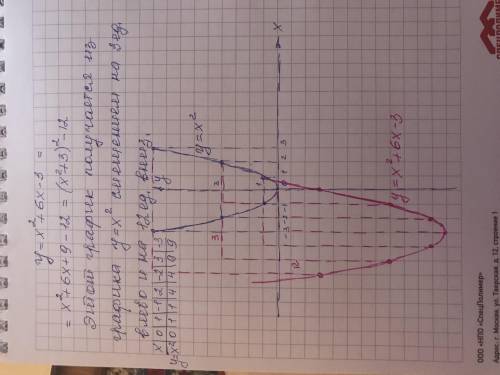 y = x² + 6x - 3 =
= x² + 6x + 9 - 12 = (x² + 3)² - 12
Этот график получается из
графика y = x² смещением на 3 ед.
влево и на 12 ед. вниз.
x 0 1 -1 2 -2 3 -3
y=x² 0 1 1 4 4 9 9
y
x
y = x²
y = x² + 6x - 3
-3 -2 -1 1 2 3
1
3
ООО «НПО «СпецПолимер»
Адрес: г. Москва, ул. Тверская, д. 12, строение 1